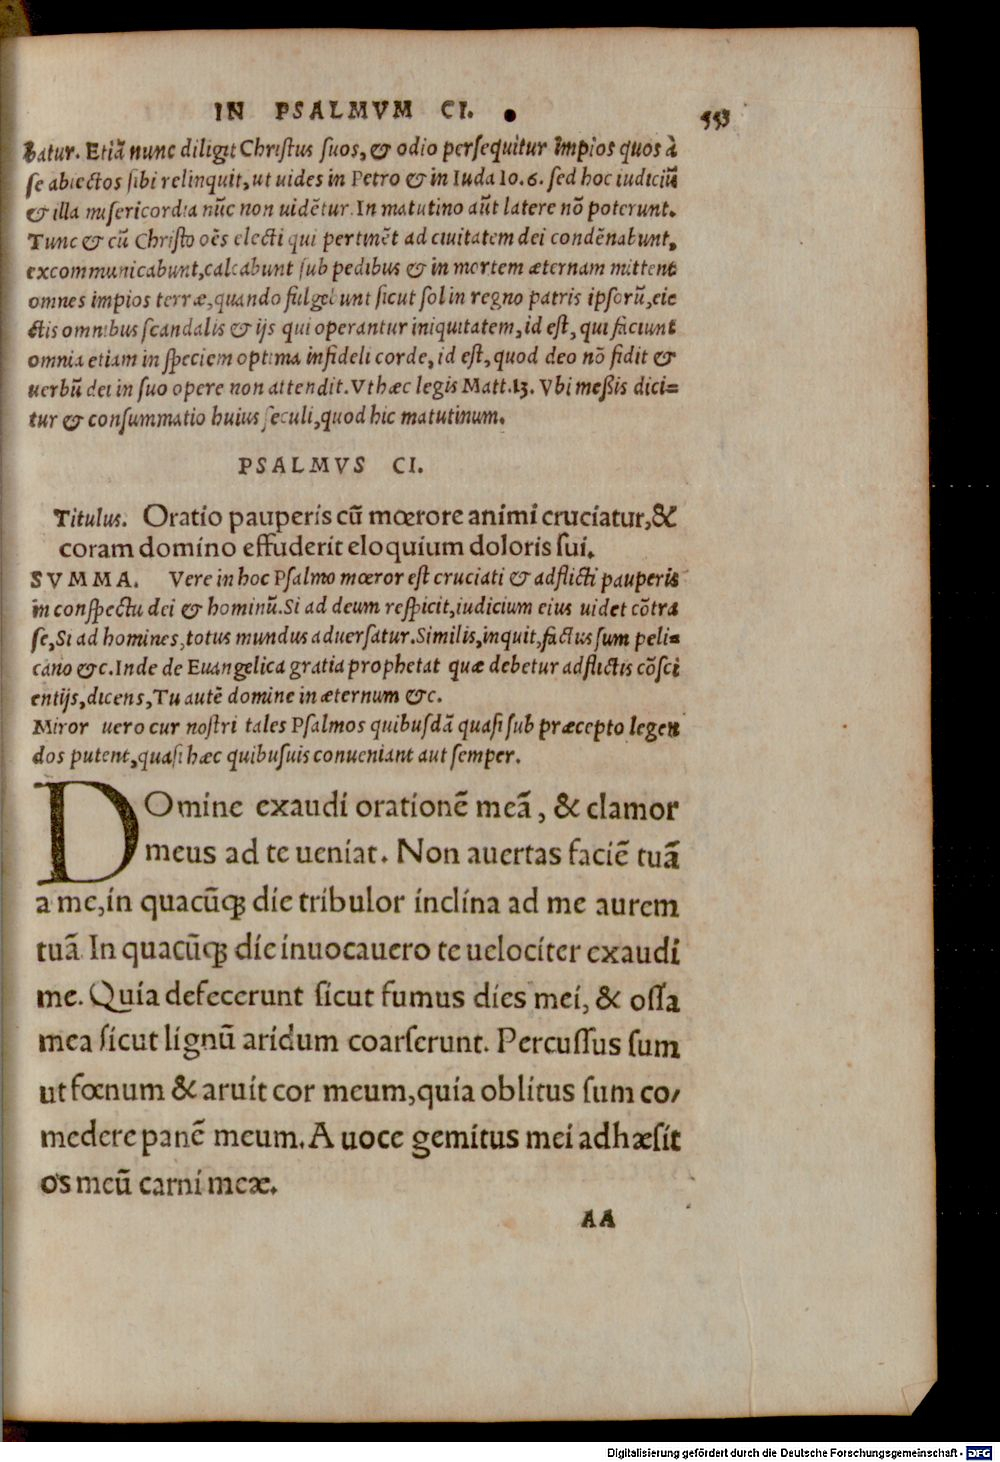 IN PSALMVM CI. 553
batur. Etiã nunc diligit Christus suos, & odio persequitur impios quos à
se abiectos sibi relinquit, ut uides in Petro & in Iuda 10. 6. sed hoc iudiciũ
& illa misericordia nũc non uidētur. In matutino aũt latere nõ poterunt.
Tunc & cũ Christo oēs electi qui pertinēt ad ciuitatem dei condēnabunt,
excommunicabunt, calcabunt sub pedibus & in mortem æternam mittent
omnes impios terræ, quando fulgebunt sicut sol in regno patris ipsorũ, eie
ctis omnibus scandalis & ijs qui operantur iniquitatem, id est, qui faciunt
omnia etiam in speciem optima infideli corde, id est, quod deo nõ fidit &
uerbũ dei in suo opere non attendit. Vt hæc legis Matt. 13. Vbi meßis dici=
tur & consummatio huius seculi, quod hic matutinum.
PSALMVS CI.
Titulus. Oratio pauperis cũ mœrore animi cruciatur, &
coram domino effuderit eloquium doloris sui.
SVMMA. Vere in hoc Psalmo mœror est cruciati & adflicti pauperis
in conspectu dei & hominũ. Si ad deum respicit, iudicium eius uidet cõtra
se, Si ad homines, totus mundus aduersatur. Similis, inquit, factus sum peli=
cano &c. Inde de Euangelica gratia prophetat quæ debetur adflictis cõsci
entijs, dicens, Tu autē domine in æternum &c.
Miror uero cur nostri tales Psalmos quibusdã quasi sub præcepto legen
dos putent, quasi hæc quibusuis conueniant aut semper.
DOmine exaudi orationē meã, & clamor
meus ad te ueniat. Non auertas faciē tuã
a me, in quacũq; die tribulor inclina ad me aurem
tuã. In quacũq; die inuocauero te uelociter exaudi
me. Quia defecerunt sicut fumus dies mei, & ossa
mea sicut lignũ aridum coarserunt. Percussus sum
ut fœnum & aruit cor meum, quia oblitus sum co/
medere panē meum. A uoce gemitus mei adhæsit
os meũ carni meæ.
AA
Digitalisierung gefördert durch die Deutsche Forschungsgemeinschaft - DFG